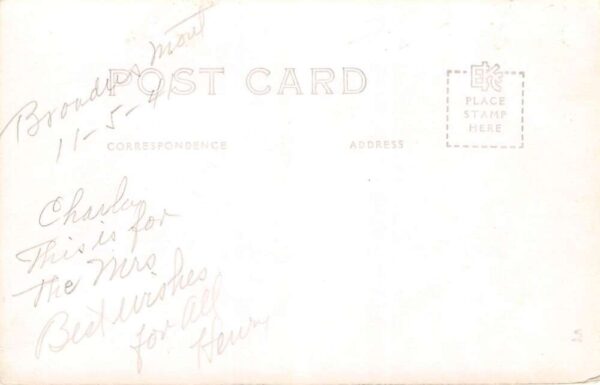 Broadus Mont
11-5-41
POST CARD
EKC
PLACE
STAMP
HERE
CORRESPONDENCE
ADDRESS
This is for
The Mrs
Best wishes
for all
Henry